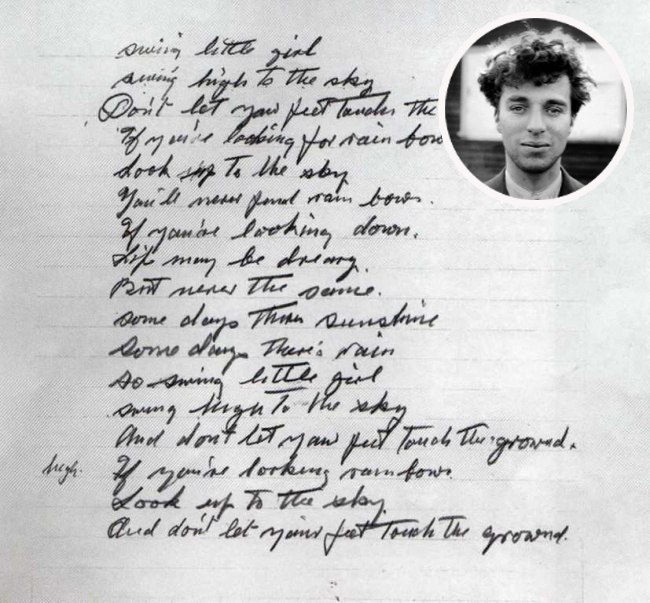 swing little girl
swing high to the sky
Don't let your feet touch the
If you're looking for rain bow
Look up to the sky
You'll never find rain bows.
If you're looking down.
Life may be dreary,
But never the same.
some days theres sunshine
Some days there's rain
so swing little girl
swing high to the sky
And don't let your feet touch the ground.
high. If you're looking rainbows
Look up to the sky
And don't let your feet touch the ground.